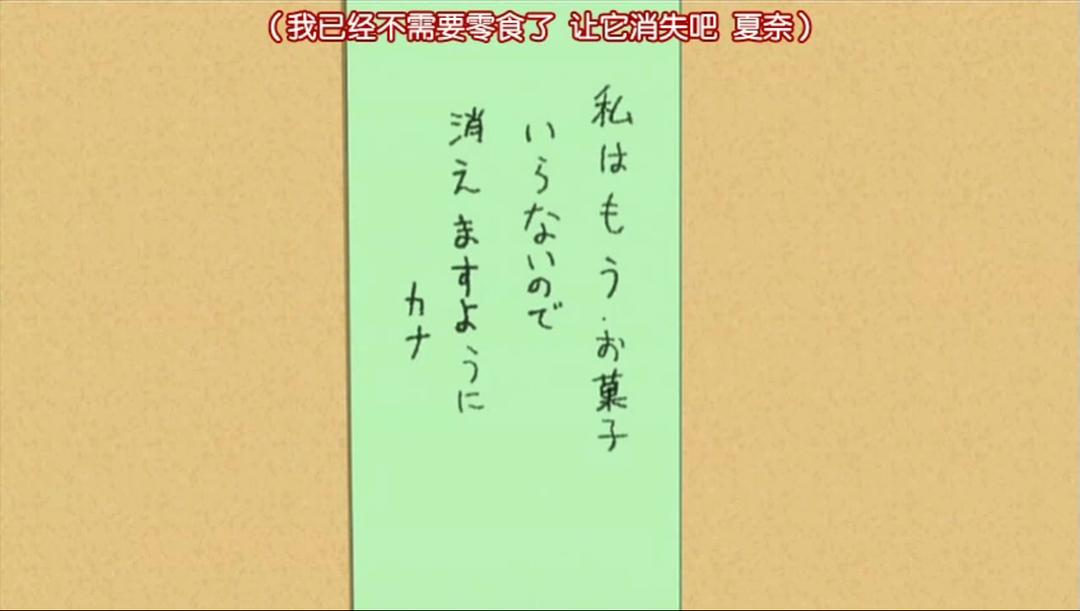 （我已经不需要零食了 让它消失吧 夏奈）
私はもう.お菓子
いらないので
消えますように
カナ